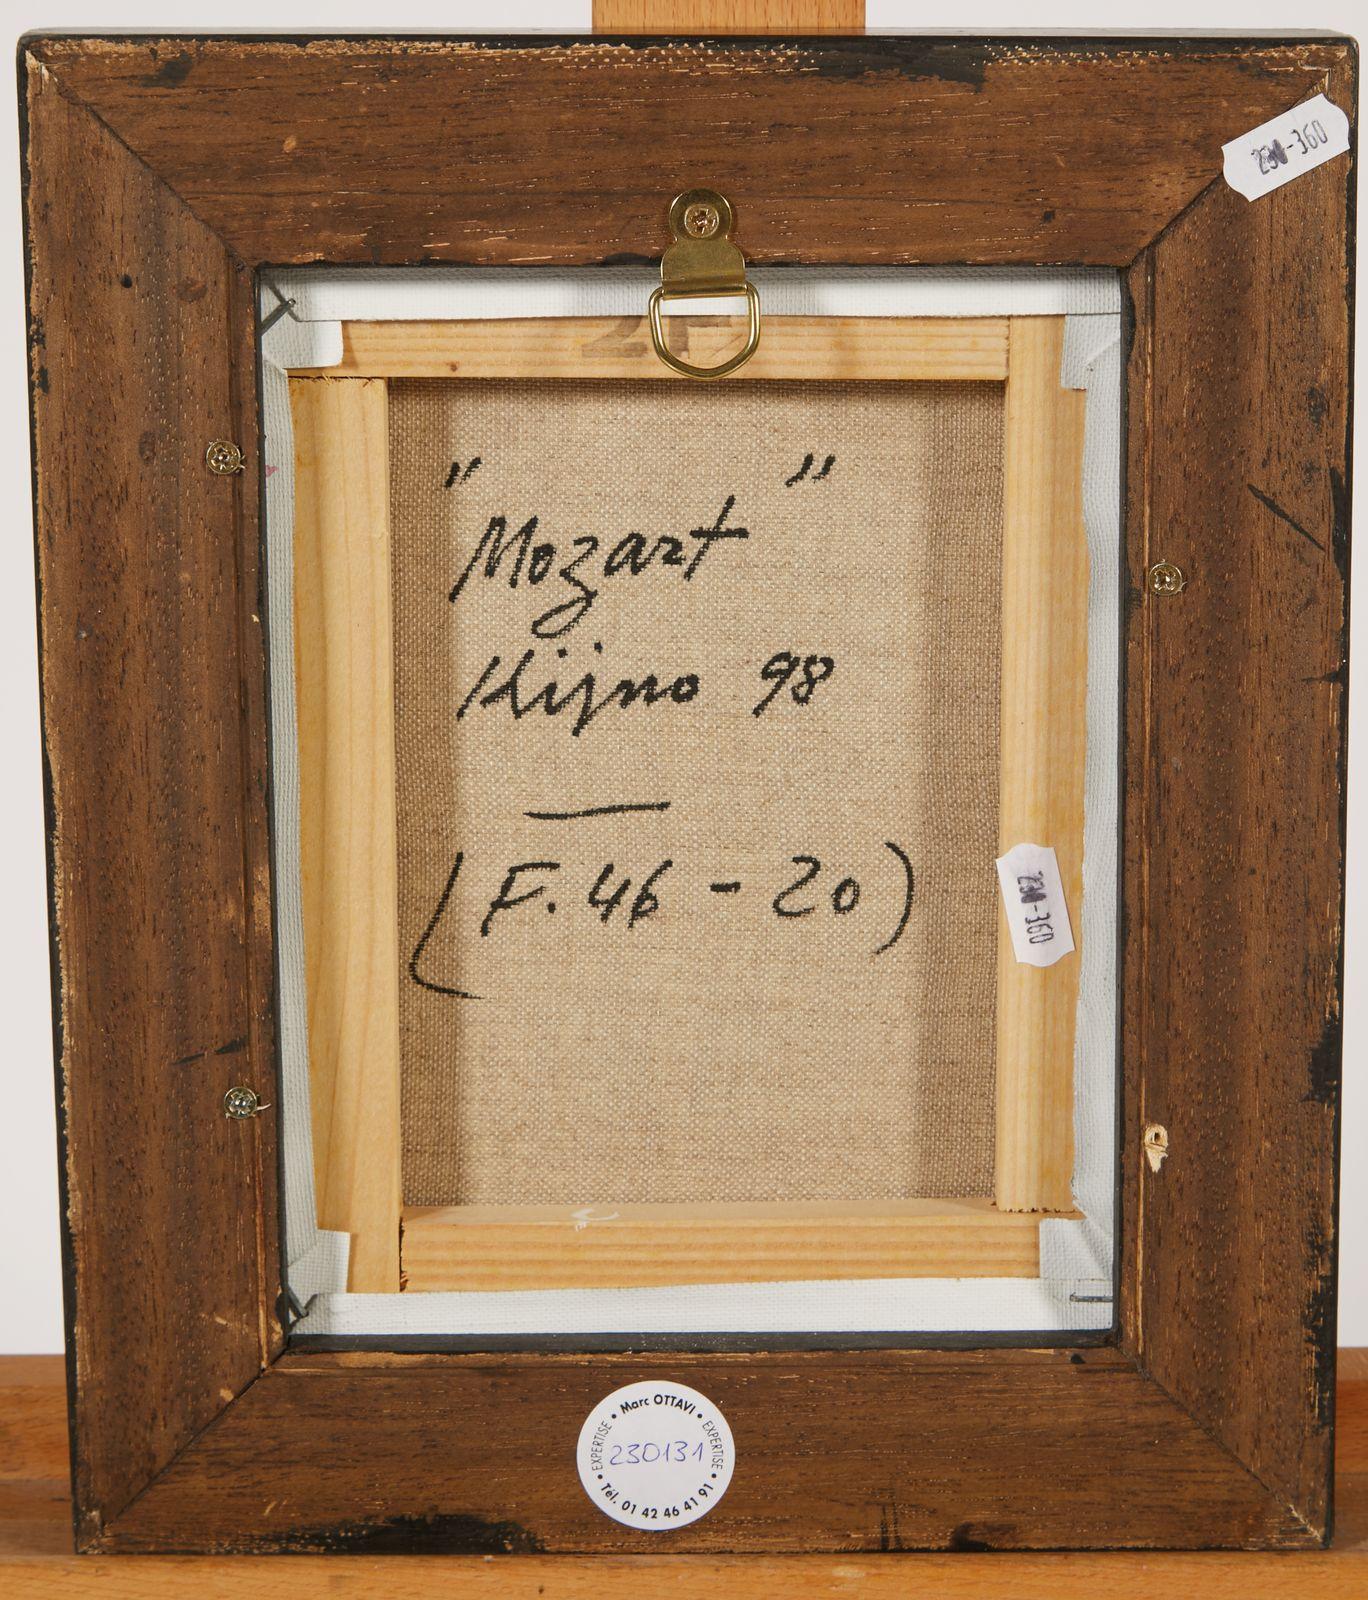 -360
2F
"Mozart"
Hijno 98
(F. 46 - 20)
-360
• Marc OTTAVI •
EXPERTISE
230131
EXPERTISE
• Tél. 01 42 46 41 91 •